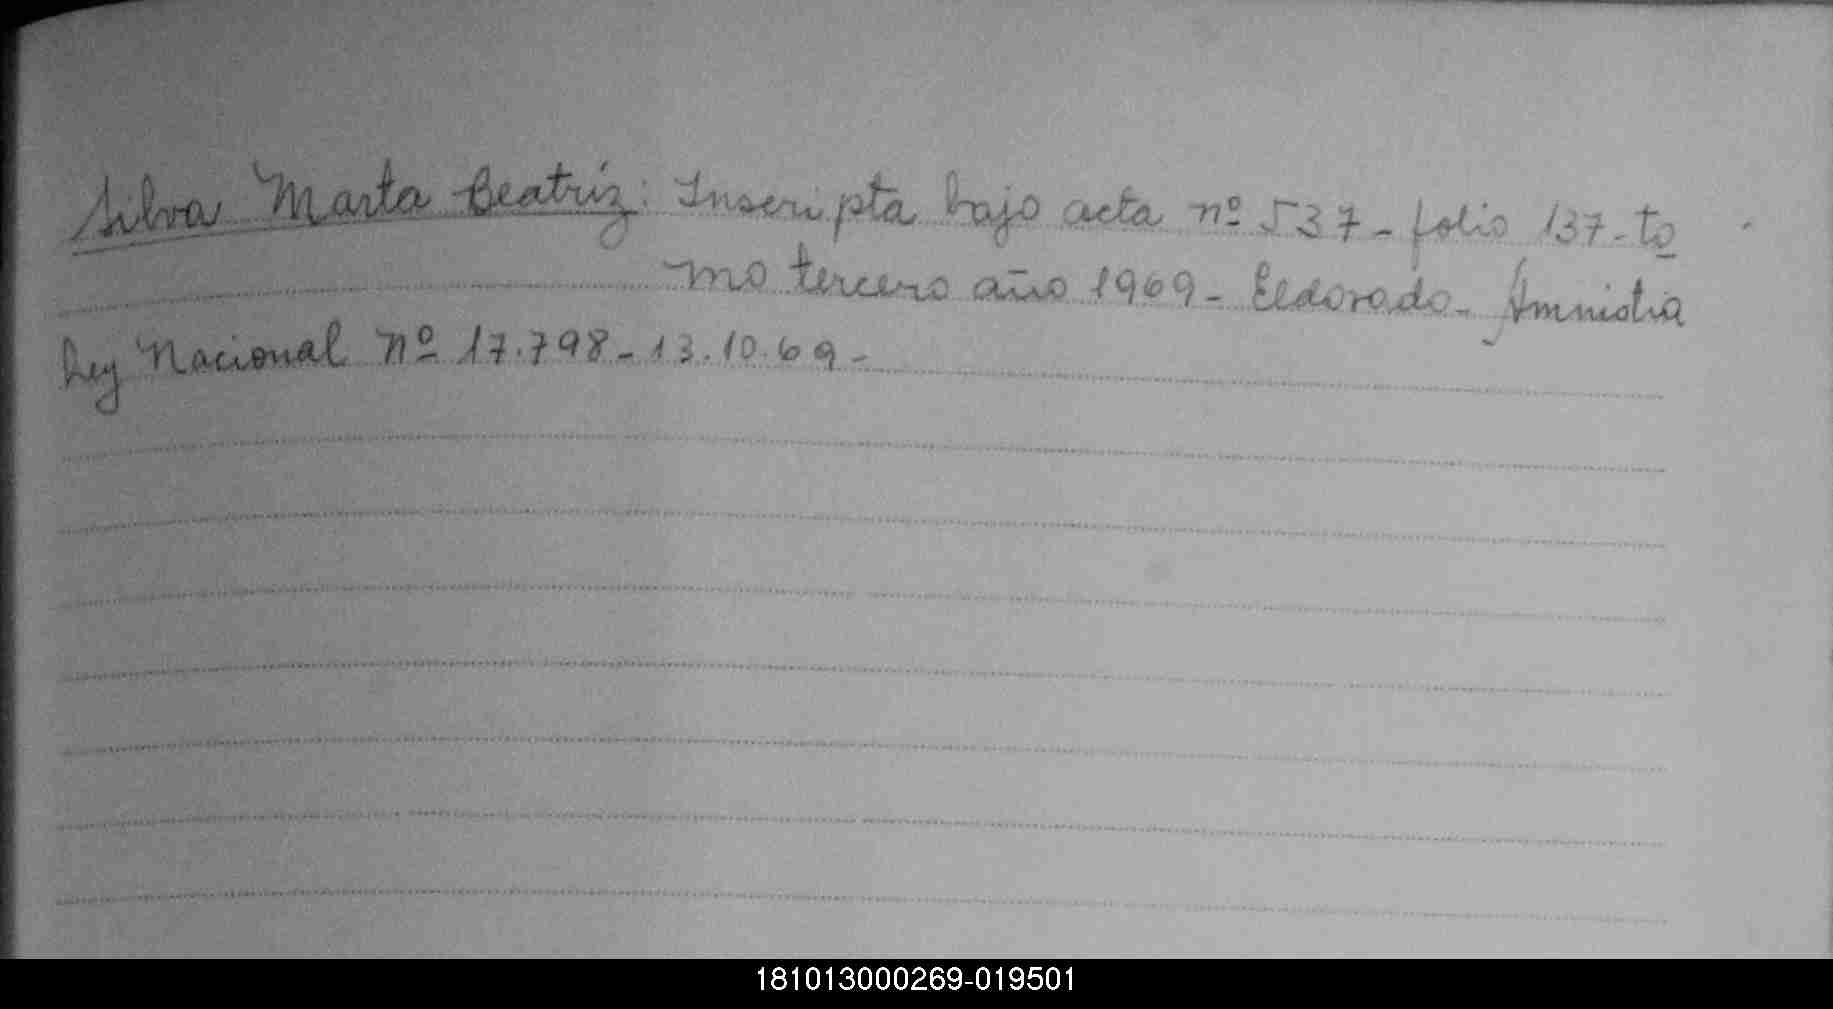 Silva Marta Beatríz: Inscripta bajo acta nº 537 - folio 137 - to
mo tercero año 1969 - Eldorado - Amnistia
Ley Nacional Nº 17.798 - 13.10.69 -
181013000269-019501